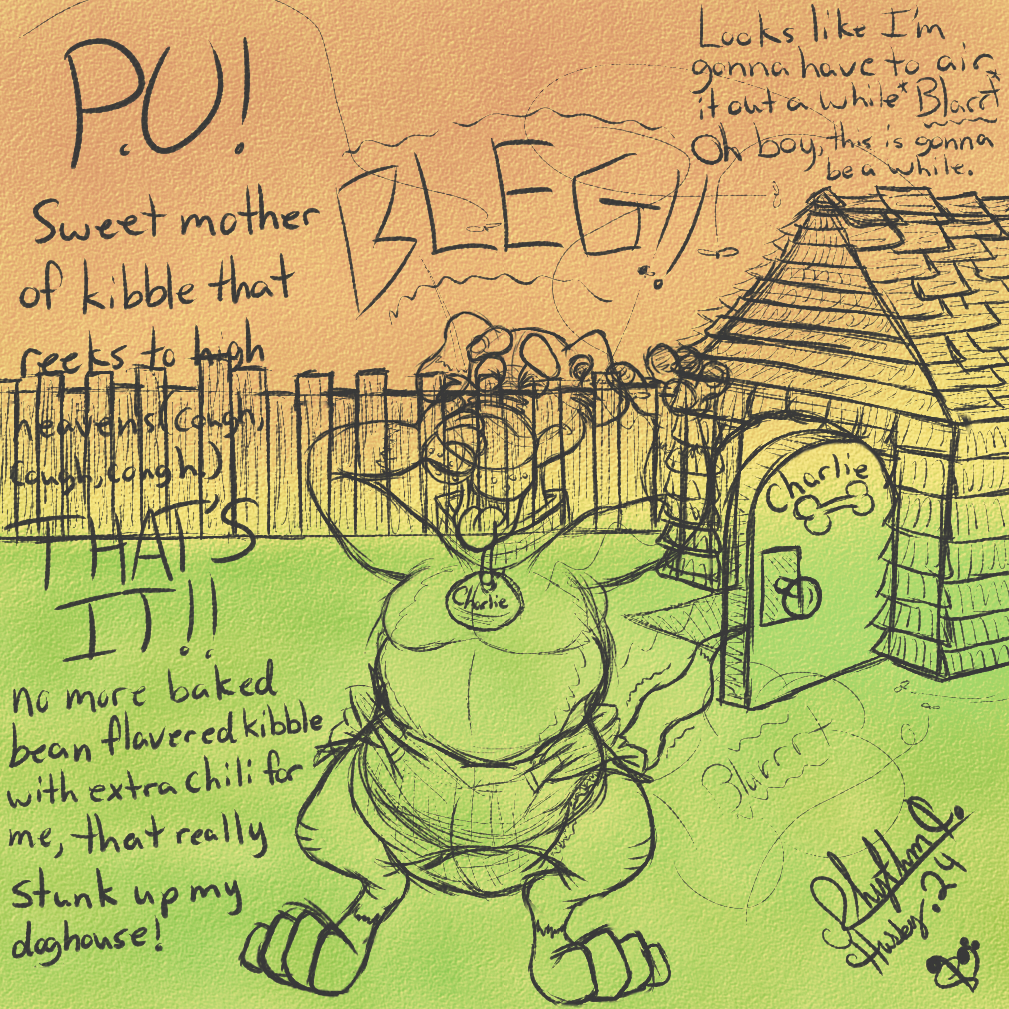 P.U!
Sweet mother
of kibble that
reeks to high
heavens! (cough,
cough, cough.)
THAT'S
IT!!
no more baked
bean flavered kibble
with extra chili for
me, that really
stunk up my
doghouse!
BLEG!!
Looks like I'm
gonna have to air
it out a while *Blarrt*
Oh boy, this is gonna
be a while.
Charlie
Charlie
Blarrrt
Rhythm
Husky. 24